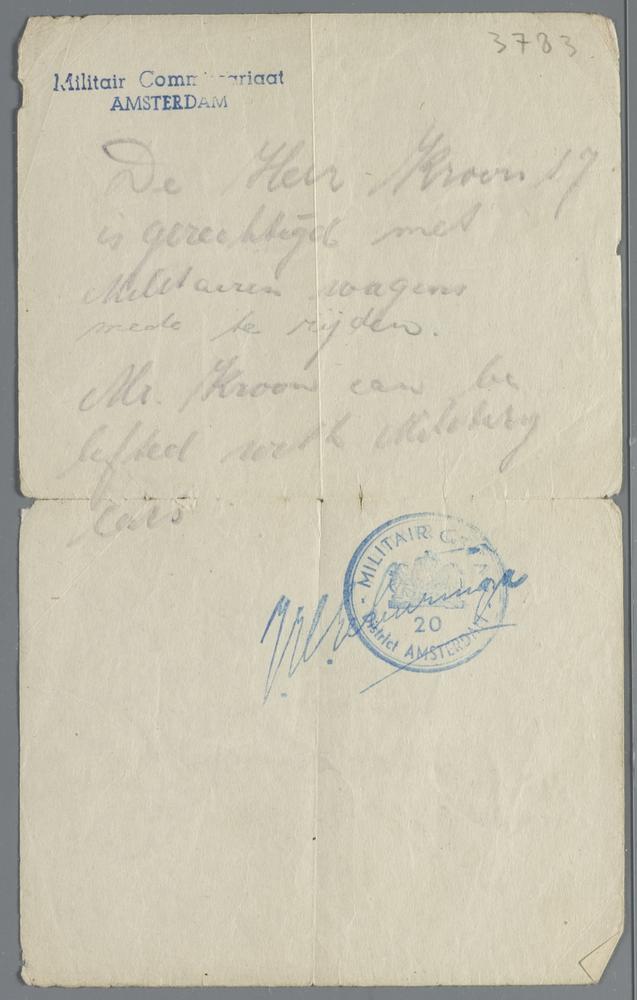 3783
Militair Comm ariaat
AMSTERDAM
De Heer Kroon
is gerechtigd met
Militairen wagens
mede te rijden.
Mr. Kroon can be
lifted with Military
cars
MILITAIR
20
District AMSTERDAM